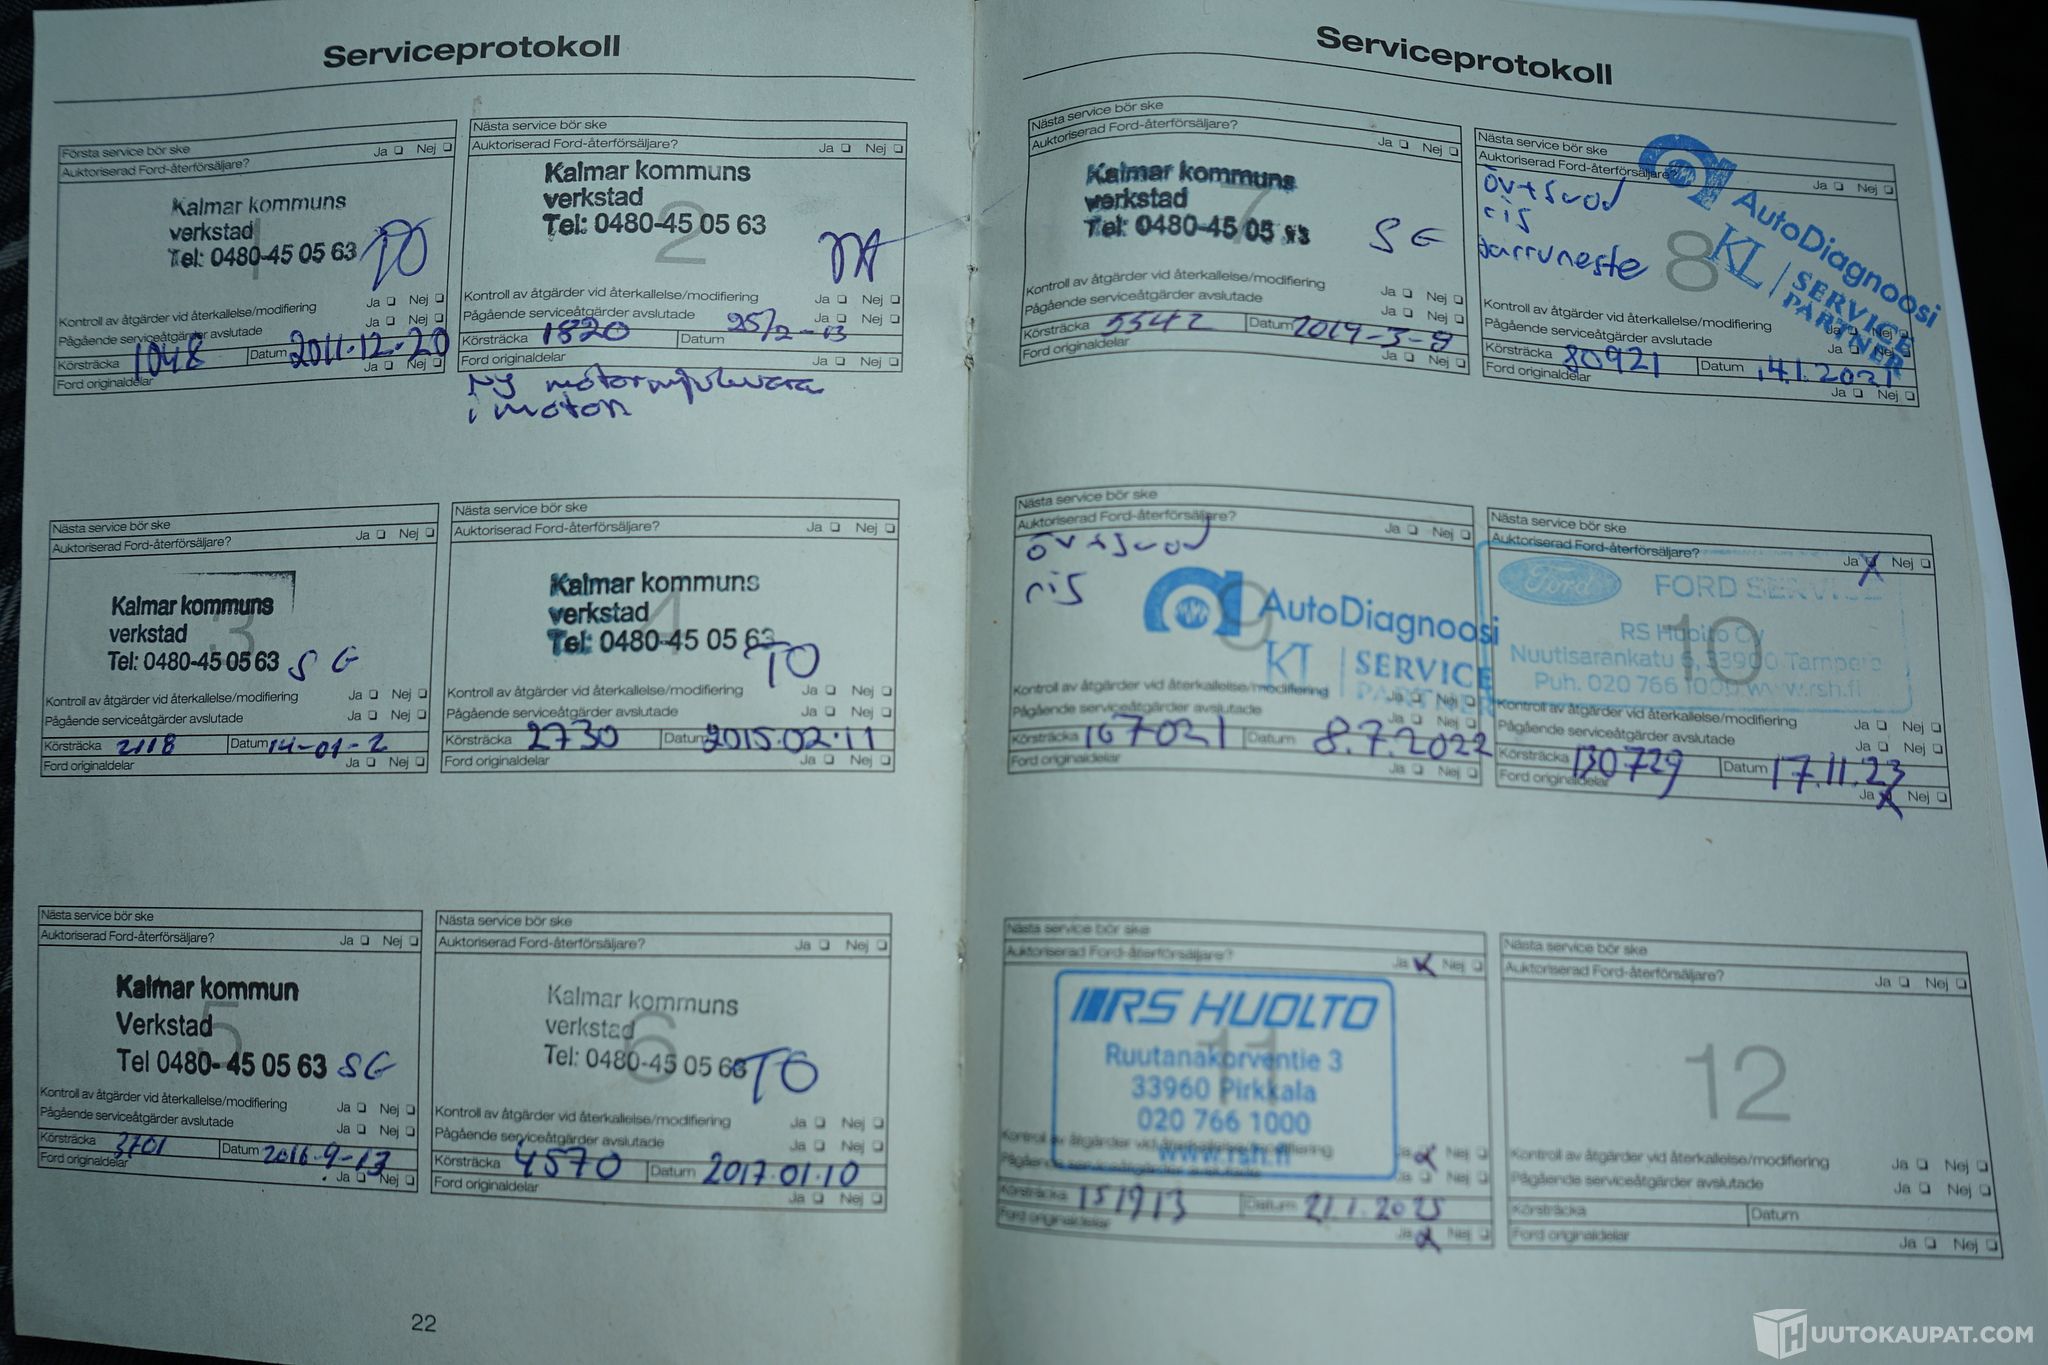 Serviceprotokoll
Första service bör ske
Auktoriserad Ford-återförsäljare? Ja Nej
1
Kalmar kommuns
verkstad
Tel: 0480-45 05 63 TO
Kontroll av åtgärder vid återkallelse/modifiering Ja Nej
Pågående serviceåtgärder avslutade Ja Nej
Körsträcka 1048 Datum 2011-12-20
Ford originaldelar Ja Nej
Nästa service bör ske
Auktoriserad Ford-återförsäljare? Ja Nej
2
Kalmar kommuns
verkstad
Tel: 0480-45 05 63
Kontroll av åtgärder vid återkallelse/modifiering Ja Nej
Pågående serviceåtgärder avslutade Ja Nej
Körsträcka 1820 Datum 25/2-13
Ford originaldelar Ja Nej
Ny
i motorn
Nästa service bör ske
Auktoriserad Ford-återförsäljare? Ja Nej
3
Kalmar kommuns
verkstad
Tel: 0480-45 05 63 SG
Kontroll av åtgärder vid återkallelse/modifiering Ja Nej
Pågående serviceåtgärder avslutade Ja Nej
Körsträcka 2118 Datum 14-01-2
Ford originaldelar Ja Nej
Nästa service bör ske
Auktoriserad Ford-återförsäljare? Ja Nej
4
Kalmar kommuns
verkstad
Tel: 0480-45 05 63 TO
Kontroll av åtgärder vid återkallelse/modifiering Ja Nej
Pågående serviceåtgärder avslutade Ja Nej
Körsträcka 2730 Datum 2015.02.11
Ford originaldelar Ja Nej
Nästa service bör ske
Auktoriserad Ford-återförsäljare? Ja Nej
5
Kalmar kommun
Verkstad
Tel 0480- 45 05 63 SG
Kontroll av åtgärder vid återkallelse/modifiering Ja Nej
Pågående serviceåtgärder avslutade Ja Nej
Körsträcka 3701 Datum 2016-9-13
Ford originaldelar Ja Nej
Nästa service bör ske
Auktoriserad Ford-återförsäljare? Ja Nej
6
Kalmar kommuns
verkstad
Tel: 0480-45 05 63 TO
Kontroll av åtgärder vid återkallelse/modifiering Ja Nej
Pågående serviceåtgärder avslutade Ja Nej
Körsträcka 4570 Datum 2017.01.10
Ford originaldelar Ja Nej
22
Serviceprotokoll
Nästa service bör ske
Auktoriserad Ford-återförsäljare? Ja Nej
7
Kalmar kommuns
verkstad
Tel: 0480-45 05 SG
Kontroll av åtgärder vid återkallelse/modifiering Ja Nej
Pågående serviceåtgärder avslutade Ja Nej
Körsträcka 5542 Datum 2019-3-8
Ford originaldelar Ja Nej
Nästa service bör ske
Auktoriserad Ford-återförsäljare? Ja Nej
8
öv+suod
ris
Jarruneste
AutoDiagnoosi
KL SERVICE
PARTNER
Kontroll av åtgärder vid återkallelse/modifiering Ja Nej
Pågående serviceåtgärder avslutade Ja Nej
Körsträcka 80921 Datum 14.1.2021
Ford originaldelar Ja Nej
Nästa service bör ske
Auktoriserad Ford-återförsäljare? Ja Nej
9
öv+suod
ris
AutoDiagnoosi
SERVICE
PARTNER
Kontroll av åtgärder vid återkallelse/modifiering Ja Nej
Pågående serviceåtgärder avslutade Ja Nej
Körsträcka 107021 Datum 8.7.2022
Ford originaldelar Ja Nej
Nästa service bör ske
Auktoriserad Ford-återförsäljare? Ja X Nej
10
Ford FORD SERVICE
RS Huolto Oy
Nuutisarankatu 6, 33900 Tampere
Puh. 020 766 1000 www.rsh.fi
Kontroll av åtgärder vid återkallelse/modifiering Ja Nej
Pågående serviceåtgärder avslutade Ja Nej
Körsträcka 130729 Datum 17.11.23
Ford originaldelar Ja X Nej
Nästa service bör ske
Auktoriserad Ford-återförsäljare? Ja X Nej
11
RS HUOLTO
Ruutanakorventie 3
33960 Pirkkala
020 766 1000
www.rsh.fi
Kontroll av åtgärder vid återkallelse/modifiering Ja X Nej
Pågående serviceåtgärder avslutade Ja Nej
Körsträcka 151913 Datum 21.1.2025
Ford originaldelar Ja X Nej
Nästa service bör ske
Auktoriserad Ford-återförsäljare? Ja Nej
12
Kontroll av åtgärder vid återkallelse/modifiering Ja Nej
Pågående serviceåtgärder avslutade Ja Nej
Körsträcka Datum
Ford originaldelar Ja Nej
HUUTOKAUPAT.COM